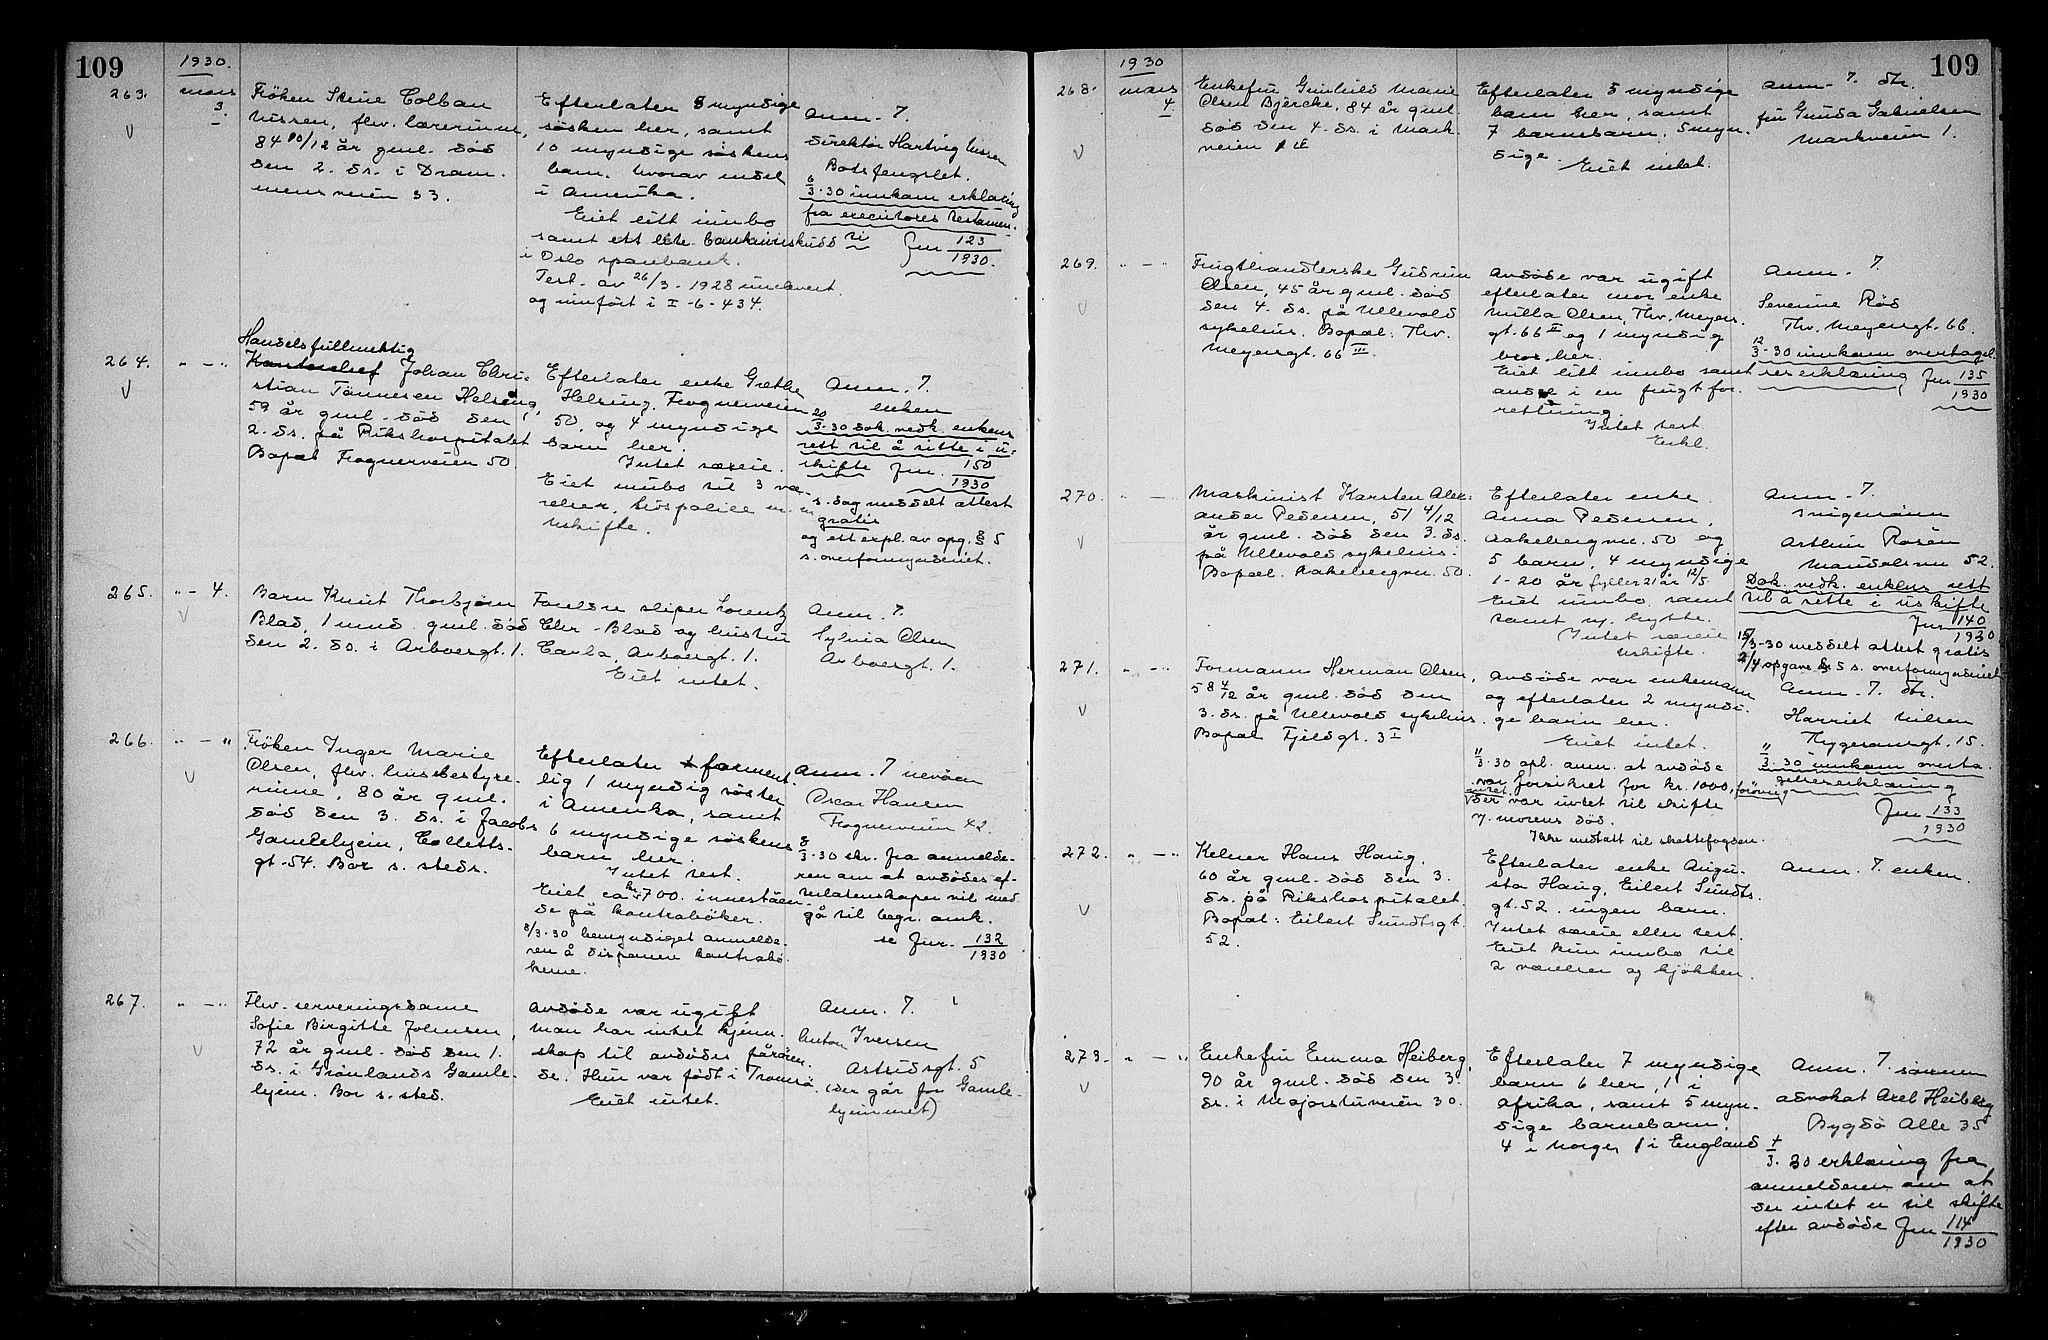 109
1930.
263.
mars
3.
Frøken Stine Colban
Nissen, fhv. lærerinne,
84 10/12 år gml. død
den 2. ds. i Dram.
mensveien 33.
Efterlater 5 myndige
søsken her, samt
10 myndige søskens
barn, hvorav endel
i Amerika.
Eiet litt innbo
samt ett lite bankinnskudd
i Oslo sparebank.
Test. av 26/3-1928 unclevert
og innført i I-6-434.
Anm. 7.
direktør Hartvig Nissen
Botsfengslet.
6/3-30 innkom erklæring
fra executores testamen-
ti
Jnr 123
1930.
264.
" - "
Handelsfullmektig
Kontorchef Johan Chri-
stian Tønnesen Helsing,
59 år gml. død den
2. ds. på Rikshospitalet
Bopæl Frognerveien 50.
Efterlater enke Grethe
Helsing, Frognerveien
50, og 4 myndige
barn her.
Intet særeie.
Eiet innbo til 3 væ-
relser, livspolice m.m
Uskifte.
Anm. 7.
enken
20/3-30 dok. vedk. enkens
rett til å sitte i u-
skifte Jnr. 150
1930
s. dag meddelt attest
gratis
og ett expl. av opg. § 5
s. overformynderiet.
265.
" - 4.
Barn Knut Thorbjørn
Blad, 1 mnd. gml. død
den 2. ds. i Arboesgt. 1.
Foreldre sliper Lorentz
Chr. Blad og hustru
Carla, Arboesgt. 1.
Eiet intet.
Anm. 7.
Sylvia Olsen
Arboesgt. 1.
266.
" - "
Frøken Inger Marie
Olsen, fhv. husbestyre-
rinne, 80 år gml.
død den 3. ds. i Jacobs
Gamlehjem, Colletts-
gt. 54. Bor s. steds.
Efterlater forment
lig 1 myndig søster
i Amerika, samt
6 myndige søskens
barn her.
Intet test.
Eiet ca kr. 700. inneståen-
de på kontrabøker.
8/3-30 bemyndiget anmelde-
ren å disponere kontrabø-
kene.
Anm. 7 nevøen
Oscar Hansen
Frognerveien 42.
8/3-30 skr. fra anmelde-
ren om at avdødes ef-
terlatenskaper vil med
gå til begr. omk.
se Jnr. 132
1930
267.
" - "
Fhv. serveringsdame
Sofie Birgitte Johnsen,
72 år gml. død den 1.
ds. i Grønlands Gamle-
hjem. Bor s. sted.
Avdøde var ugift
man har intet kjenn-
skap til avdødes pårøren
de. Hun var født i Tromsø
Eiet intet.
Anm. 7.
Anton Iversen
Astridsgt. 5
(der går for Gamle-
hjemmet)
109
1930
268.
mars
4.
Enkefru Gunhild Marie
Olsen Bjercke, 84 år gml.
død den 4. ds. i Mark-
veien 1
Efterlater 5 myndige
barn her, samt
7 barnebarn, 5 myn-
dige.
Eiet intet.
Anm. 7. dtr.
fru Gunda Gabrielsen
Markveien 1.
269.
" - "
Frugthandlerske Gudrun
Olsen, 45 år gml. død
den 4. ds. på Ullevold
sykehus. Bopæl: Thv.
Meyersgt. 66 III.
Avdøde var ugift
efterlater mor enke
Milla Olsen, Thv. Meyers-
gt. 66 II og 1 myndig
bror her.
Eiet litt innbo samt
andel i en frugtfor-
retning.
Intet test
Enkl.
Anm. 7.
Severine Rød
Thv. Meyersgt. 66.
12/3-30 innkom overtagel-
seserklæring Jnr 135
1930
270.
" - "
Maskinist Karsten Alex-
ander Pedersen, 51 4/12
år gml. død den 3. ds.
på Ullevold sykehus.
Bopæl. Aakebergvn. 50.
Efterlater enke
Anna Pedersen,
Aakebergvn. 50 og
5 barn, 4 myndige
1 - 20 år fyller 21 år 12/5.
Eiet innbo samt
samt ny. hytte.
Intet særeie
Uskifte.
Anm. 7.
svigersønn
Arthur Rosén
Mandalsvn 52.
Dok. vedk. enkens rett
til å sitte i uskifte
Jnr 140
1930
15/3-30 meddelt attest gratis
2/4 opgave § 5 s. overformynderiet.
271.
" - "
Formann Herman Olsen,
58 4/12 år gml. død den
3. ds. på Ullevold sykehus.
Bopæl Fjeldgt. 3 I
Avdøde var enkemann
og efterlater 2 myndi-
ge barn her.
Eiet intet.
11/3-30 opl. anm. at avdøde
var forsikret for kr. 1000, forøvrig
der var intet til skifte
v. morens død.
Ikke medtatt til skattefogden.
Anm. 7. dtr.
Harriet Nilsen
Thygesonsgt. 15.
11/3-30 innkom overta-
gelseserklæring
Jnr 133
1930
272.
" - "
Kelner Hans Haug,
60 år gml. død den 3.
ds. på Rikshospitalet.
Bopæl: Eilert Sundtsgt
52.
Efterlater enke Augu-
sta Haug, Eilert Sundts-
gt. 52. ingen barn.
Intet særeie eller test.
Eiet kun innbo til
2 værelser og kjøkken.
Anm. 7. enken.
273.
" - "
Enkefru Emma Heiberg,
90 år gml. død den 3.
ds. i Majorstuveien 30.
Efterlater 7 myndige
barn 6 her, 1 i
Afrika, samt 5 myn-
dige barnebarn,
4 i Norge, 1 i England
Anm. 7. sønnen
advokat Axel Heiberg
Bygdø Alle 35
30 erklæring fra
anmelderen om at
der intet er til skifte
efter avdøde Jnr 114
1930